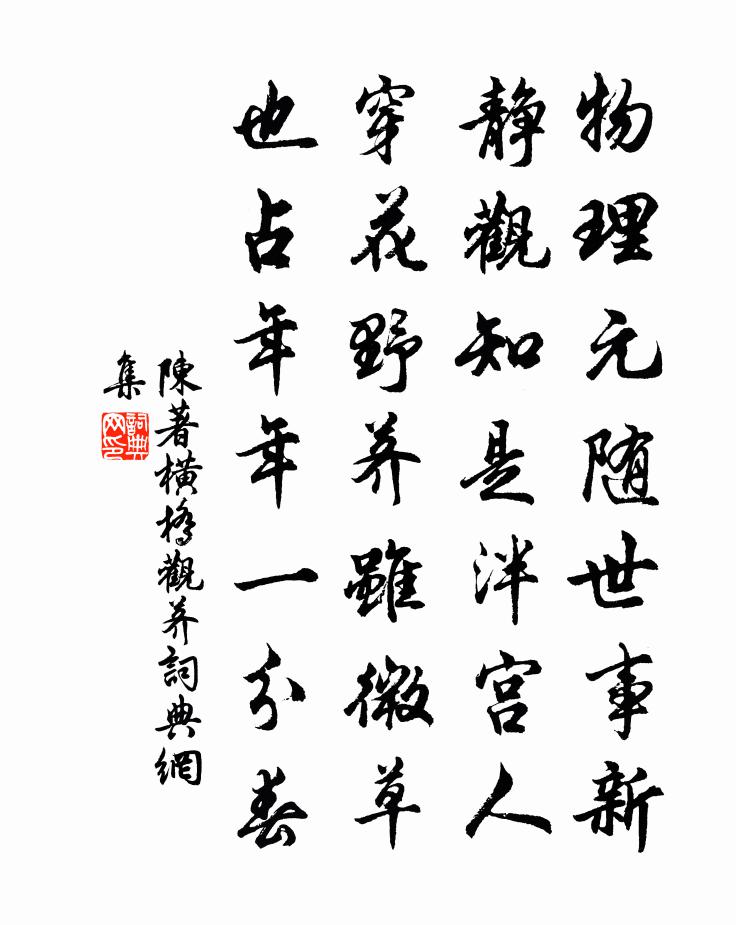 物理元随世事新
静觀知是泮宫人
穿花野荠雖微草
也占年年一分春
陳著橫橋觀荠詞典網
集
詞典网印